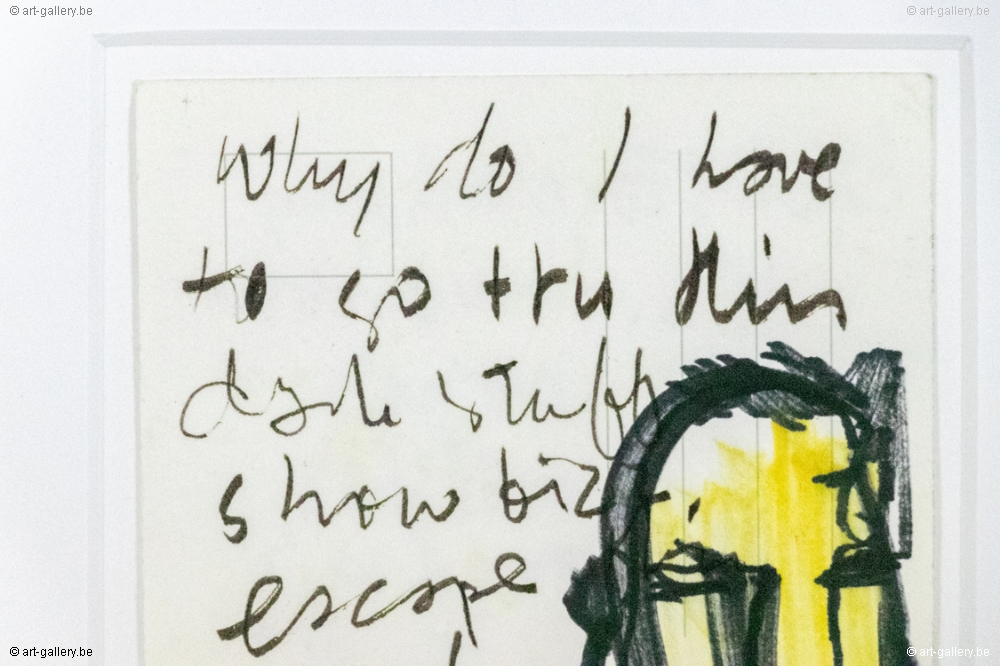 © art-gallery.be
© art-gallery.be
Why do I have
to go tru this
stuff
show biz
escape
© art-gallery.be
© art-gallery.be